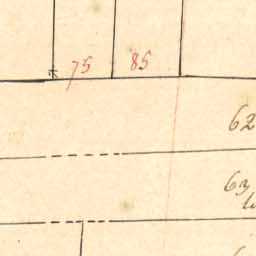 75 85
62
63